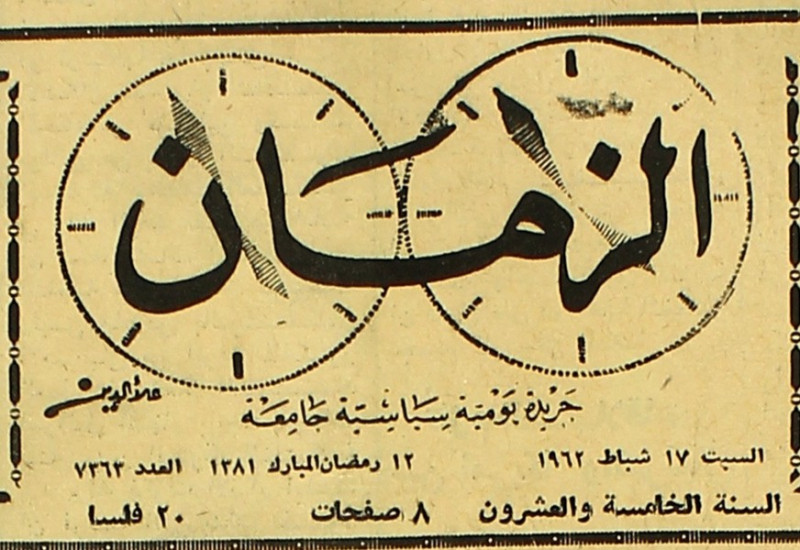 الزمان
علاء الدين
جريدة يومية سياسية جامعة
السبت ١٧ شباط ١٩٦٢ ١٢ رمضان المبارك ١٣٨١ العدد ٧٣٦٣
السنة الخامسة والعشرون ٨ صفحات ٢٠ فلسا